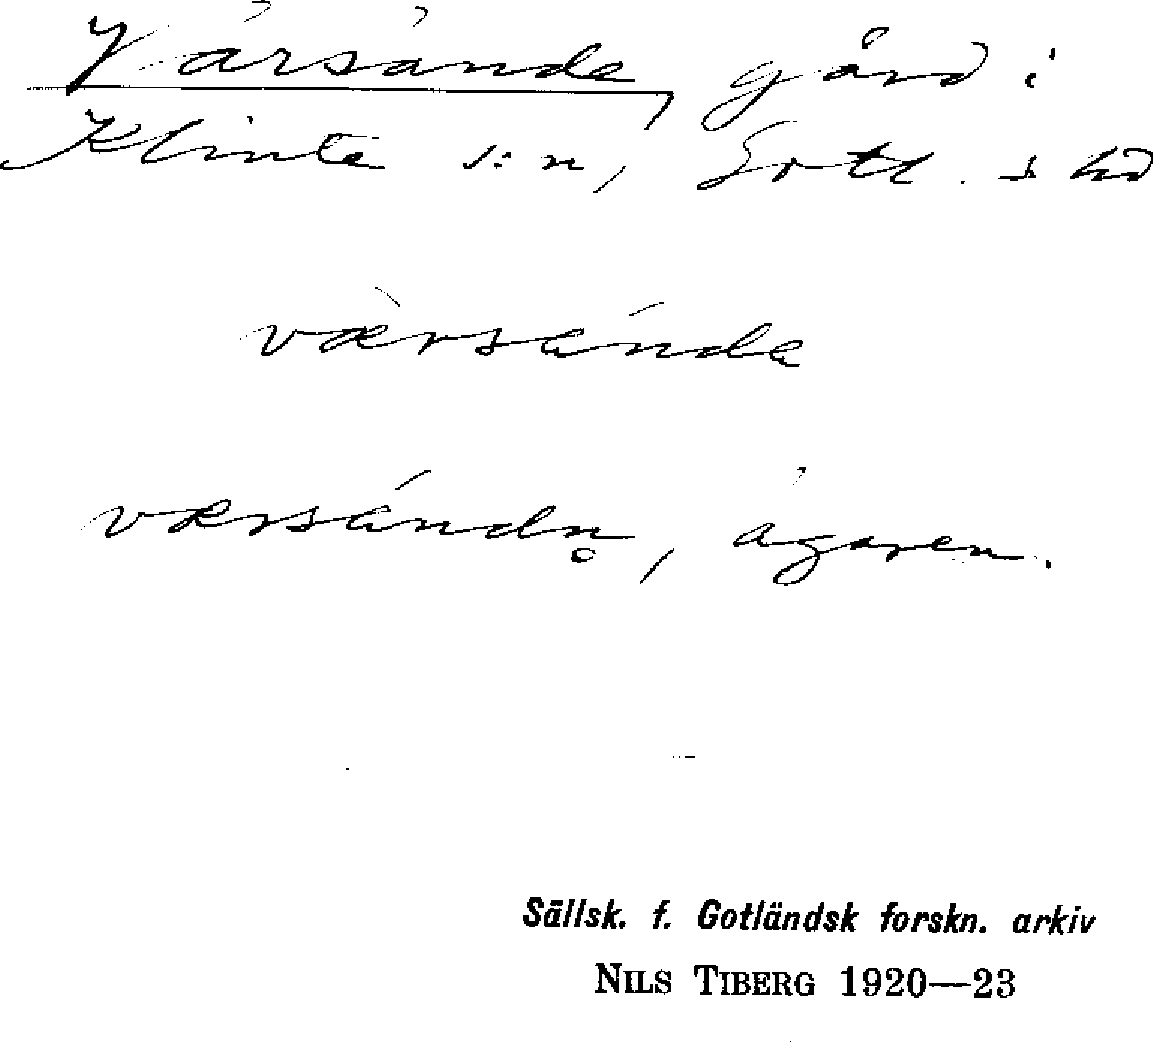 Värsände, gård i
Klinte s:n, Gotl. s hd
væ̀rsánde
værsándn̥, ägaren.
Sällsk. f. Gotländsk forskn. arkiv
NILS TIBERG 1920—23